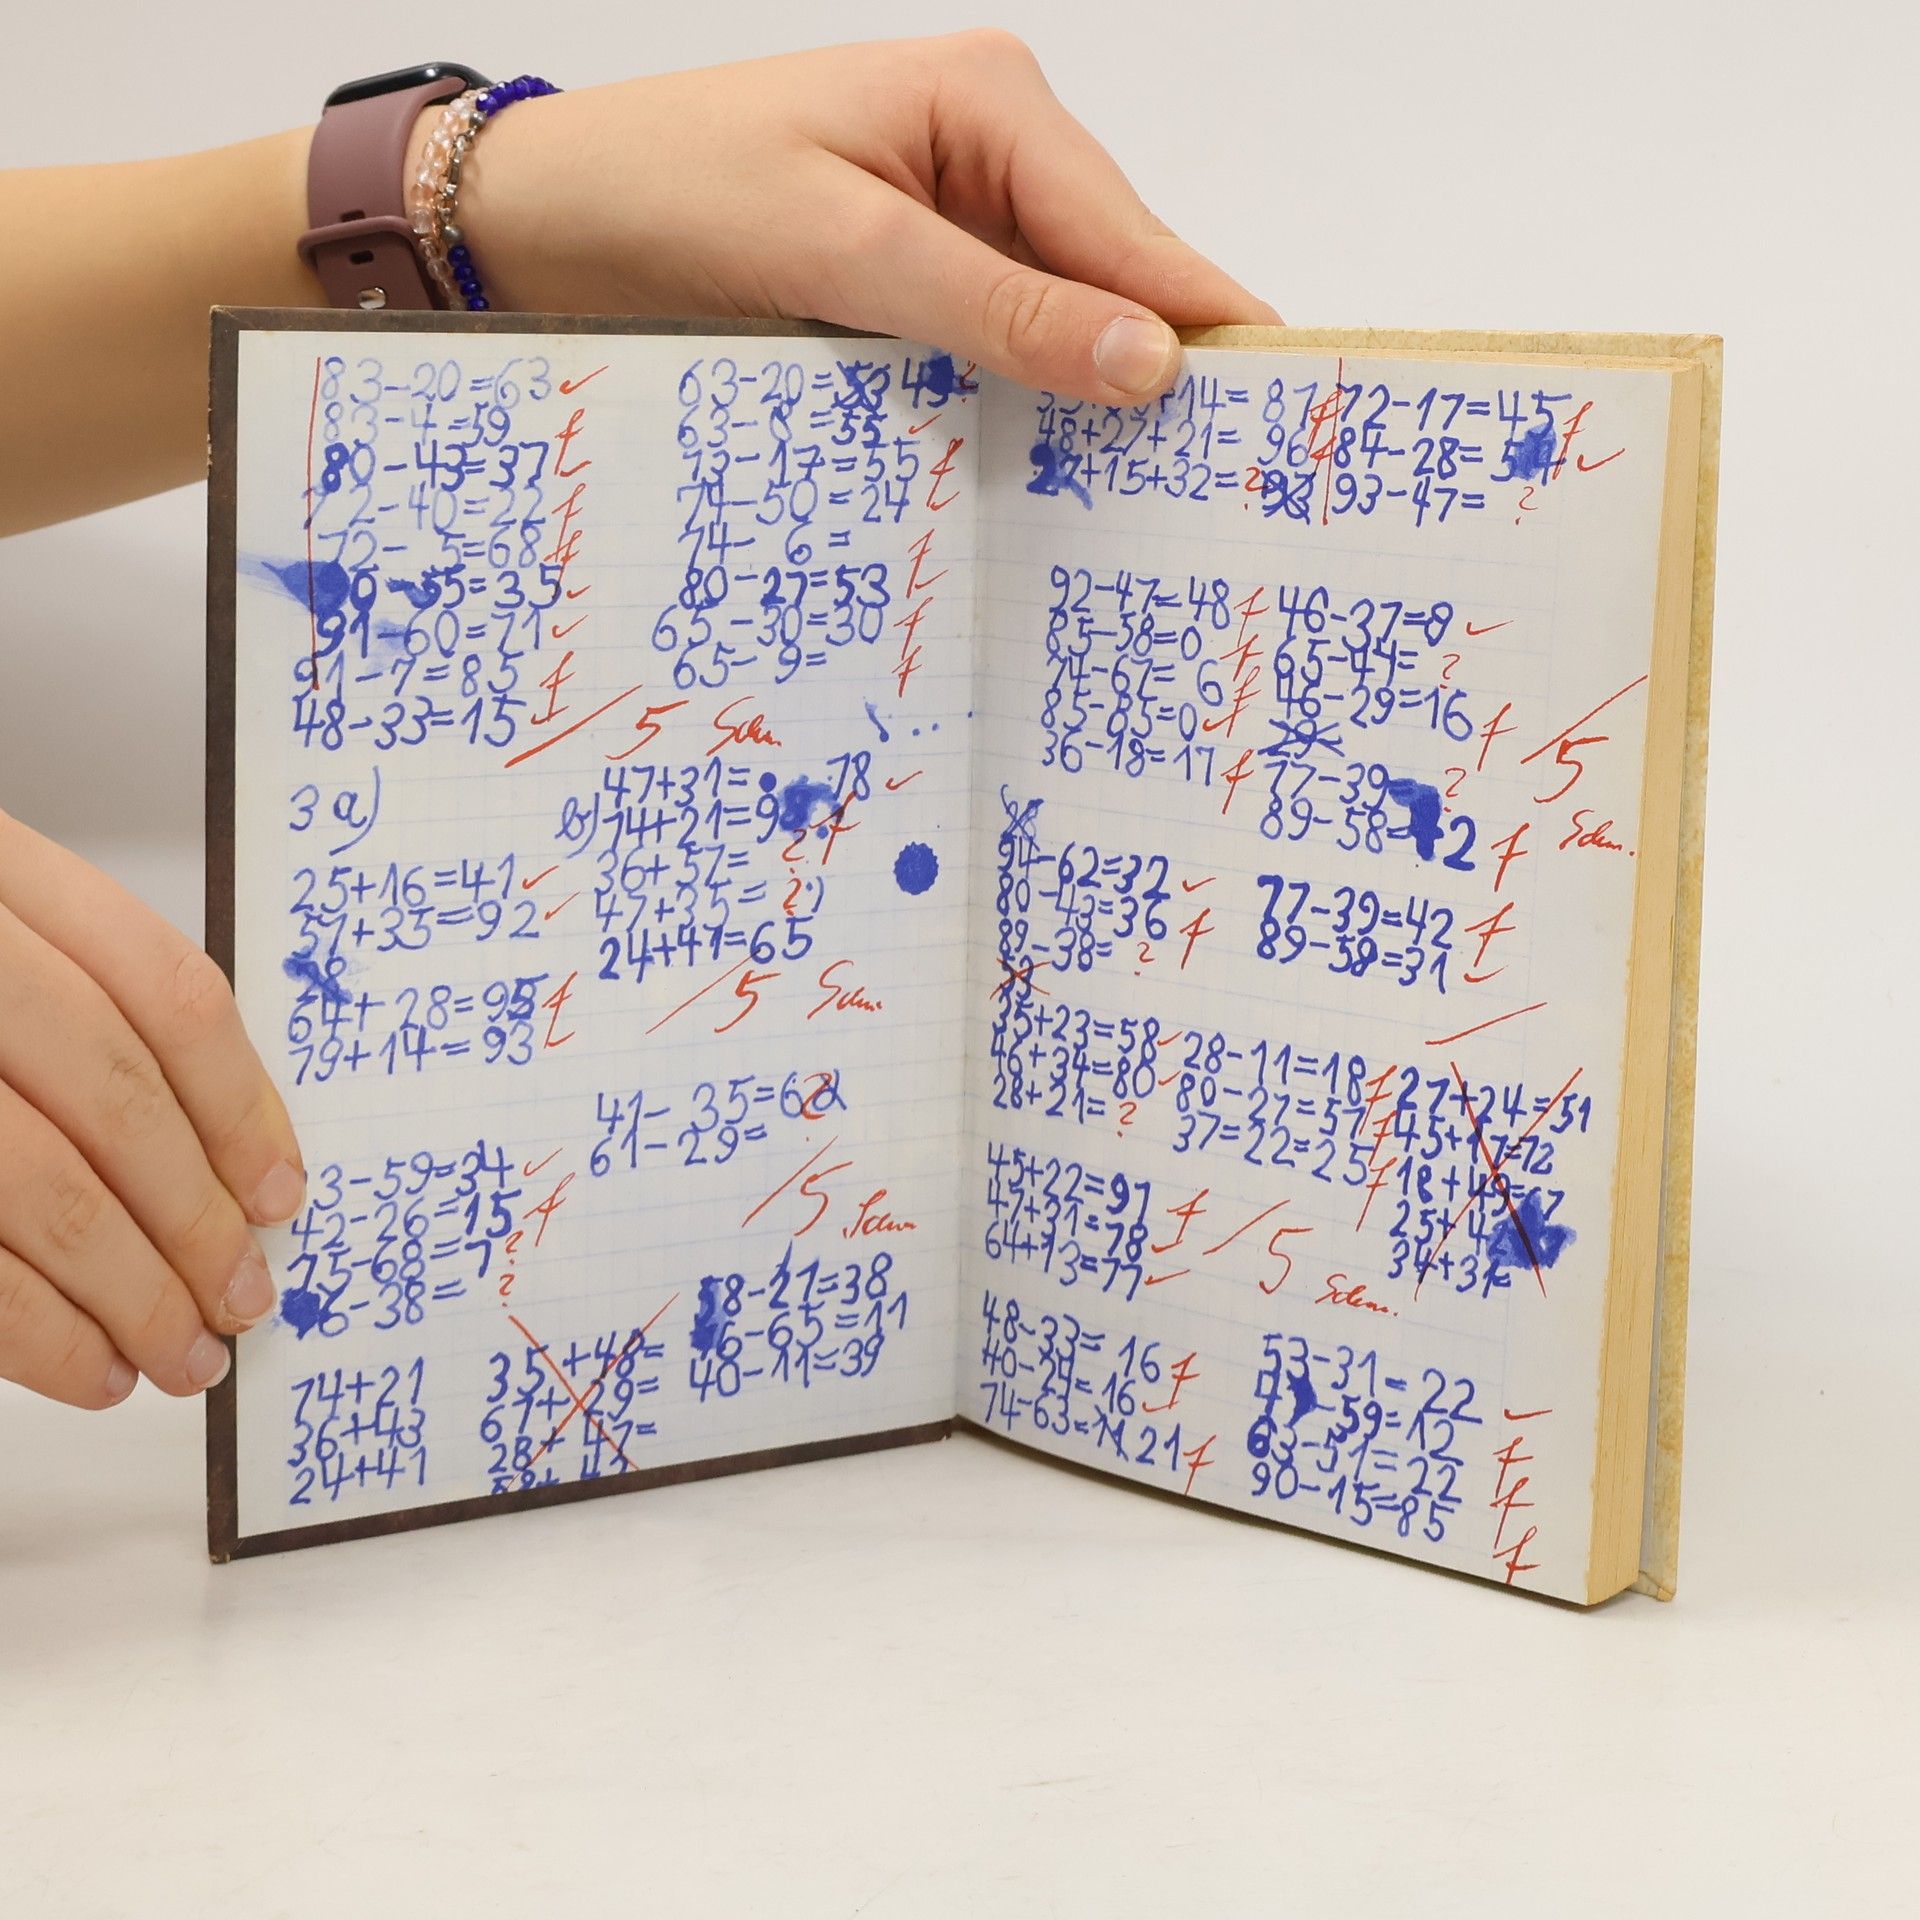 83-20=63 ✓
83-4=59 f
80-43=37 f
72-40=22 f
72- 5=68 f
-55=35 ✓
91-60=71 ✓
91-7=85 f
48-33=15 ✓
63-20= 4 ?
63-8=55 ✓
73-17=55 f
74-50=24
74- 6= f
80-27=53 f
65-30=30 f
65- 9= f
5 Schm.
3 a)
25+16=41 ✓
57+35=92 ✓
64+28=95 f
79+14=93
b)
47+31= 78 ✓
74+21=9 f
36+57= ?
47+35= ?
24+41=65
5 Schm.
41-35=6 ?
61-29=
5 Schm.
3-59=34 ✓
42-26=15 f
75-68=7 ?
6-38= ?
74+21
36+43
24+41
35+48=
67+29=
28+47=
58-21=38
6-65=11
40-11=39
+14= 87 f
48+27+21= 96 f
27+15+32= ? 93
72-17=45 f
84-28=5 ✓
93-47= ?
92-47=48 f
85-58=0 f
74-67= 6 f
85-85=0 ✓
36-18=17 f
46-37=8 ✓
65-44= ?
46-29=16 f
29-
77-39= ?
89-58= 2 f
5 Schm.
94-62=32 ✓
80-43=36 f
89-38= ?
53
77-39=42 f
89-58=31 ✓
35+23=58 ✓
46+34=80 ✓
28+21= ?
28-11=18 f
80-27=57 f
37=22=25 f
27+24=51
45+17=72
18+49=67
25+4
34+31=
45+22=97 f
47+31=78 ✓
64+13=77 ✓
5 Schm.
48-33= 16 f
40-24= 16 ✓
74-63= 21 f
53-31=22 ✓
-59=12 f
63-51=22 f
90-15=85 f